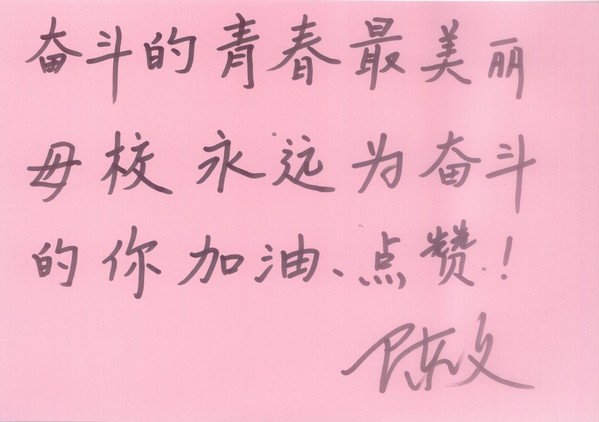 奋斗的青春最美丽
母校永远为奋斗
的你加油、点赞!
陈文